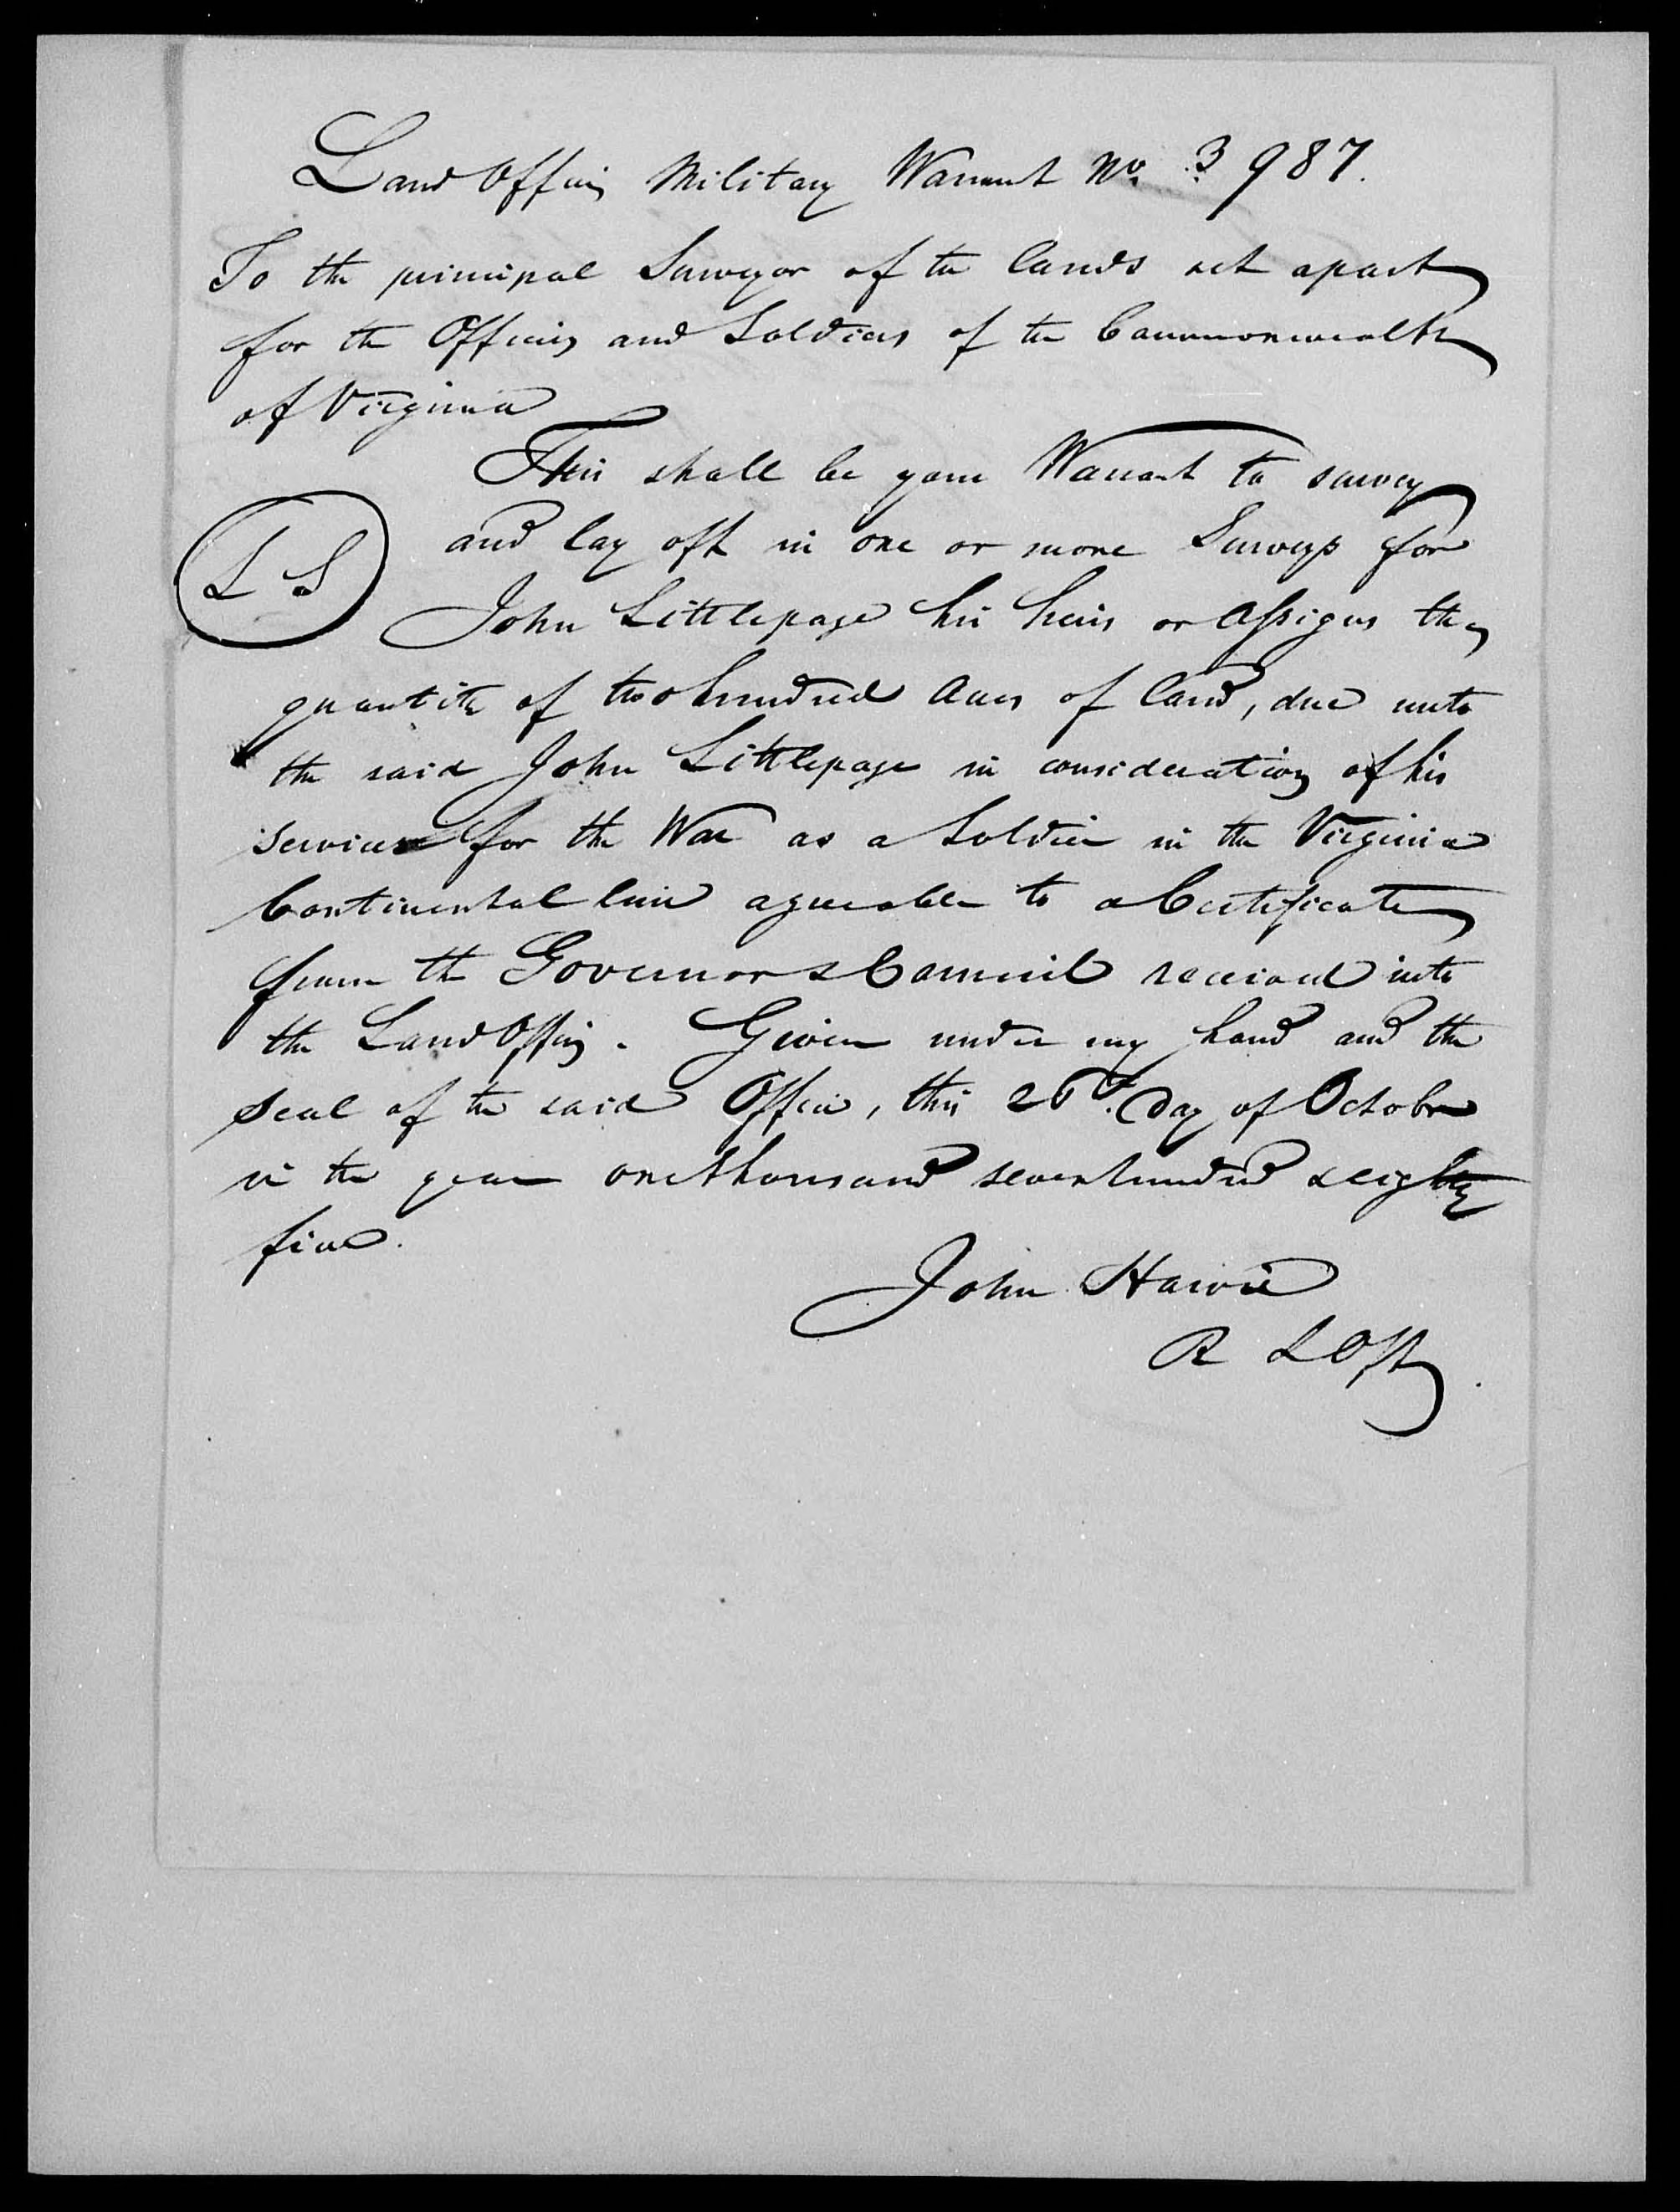 Land Office Military Warrant No. 3987.
To the principal Surveyor of the lands set apart
for the Officers and Soldiers of the Commonwealth
of Virginia
This shall be your Warrant to survey
and lay off in one or more Surveys for
L S
John Littlepage his heirs or Assigns the
quantity of two hundred Acres of land, due unto
the said John Littlepage in consideration of his
services for the War as a Soldier in the Virginia
Continental line agreeable to a Certificate
from the Governor & Council received into
the Land Office. Given under my hand and the
seal of the said Office, this 26th. Day of October
in the year one thousand seven hundred & eighty
five.
John Harvie
R L Off